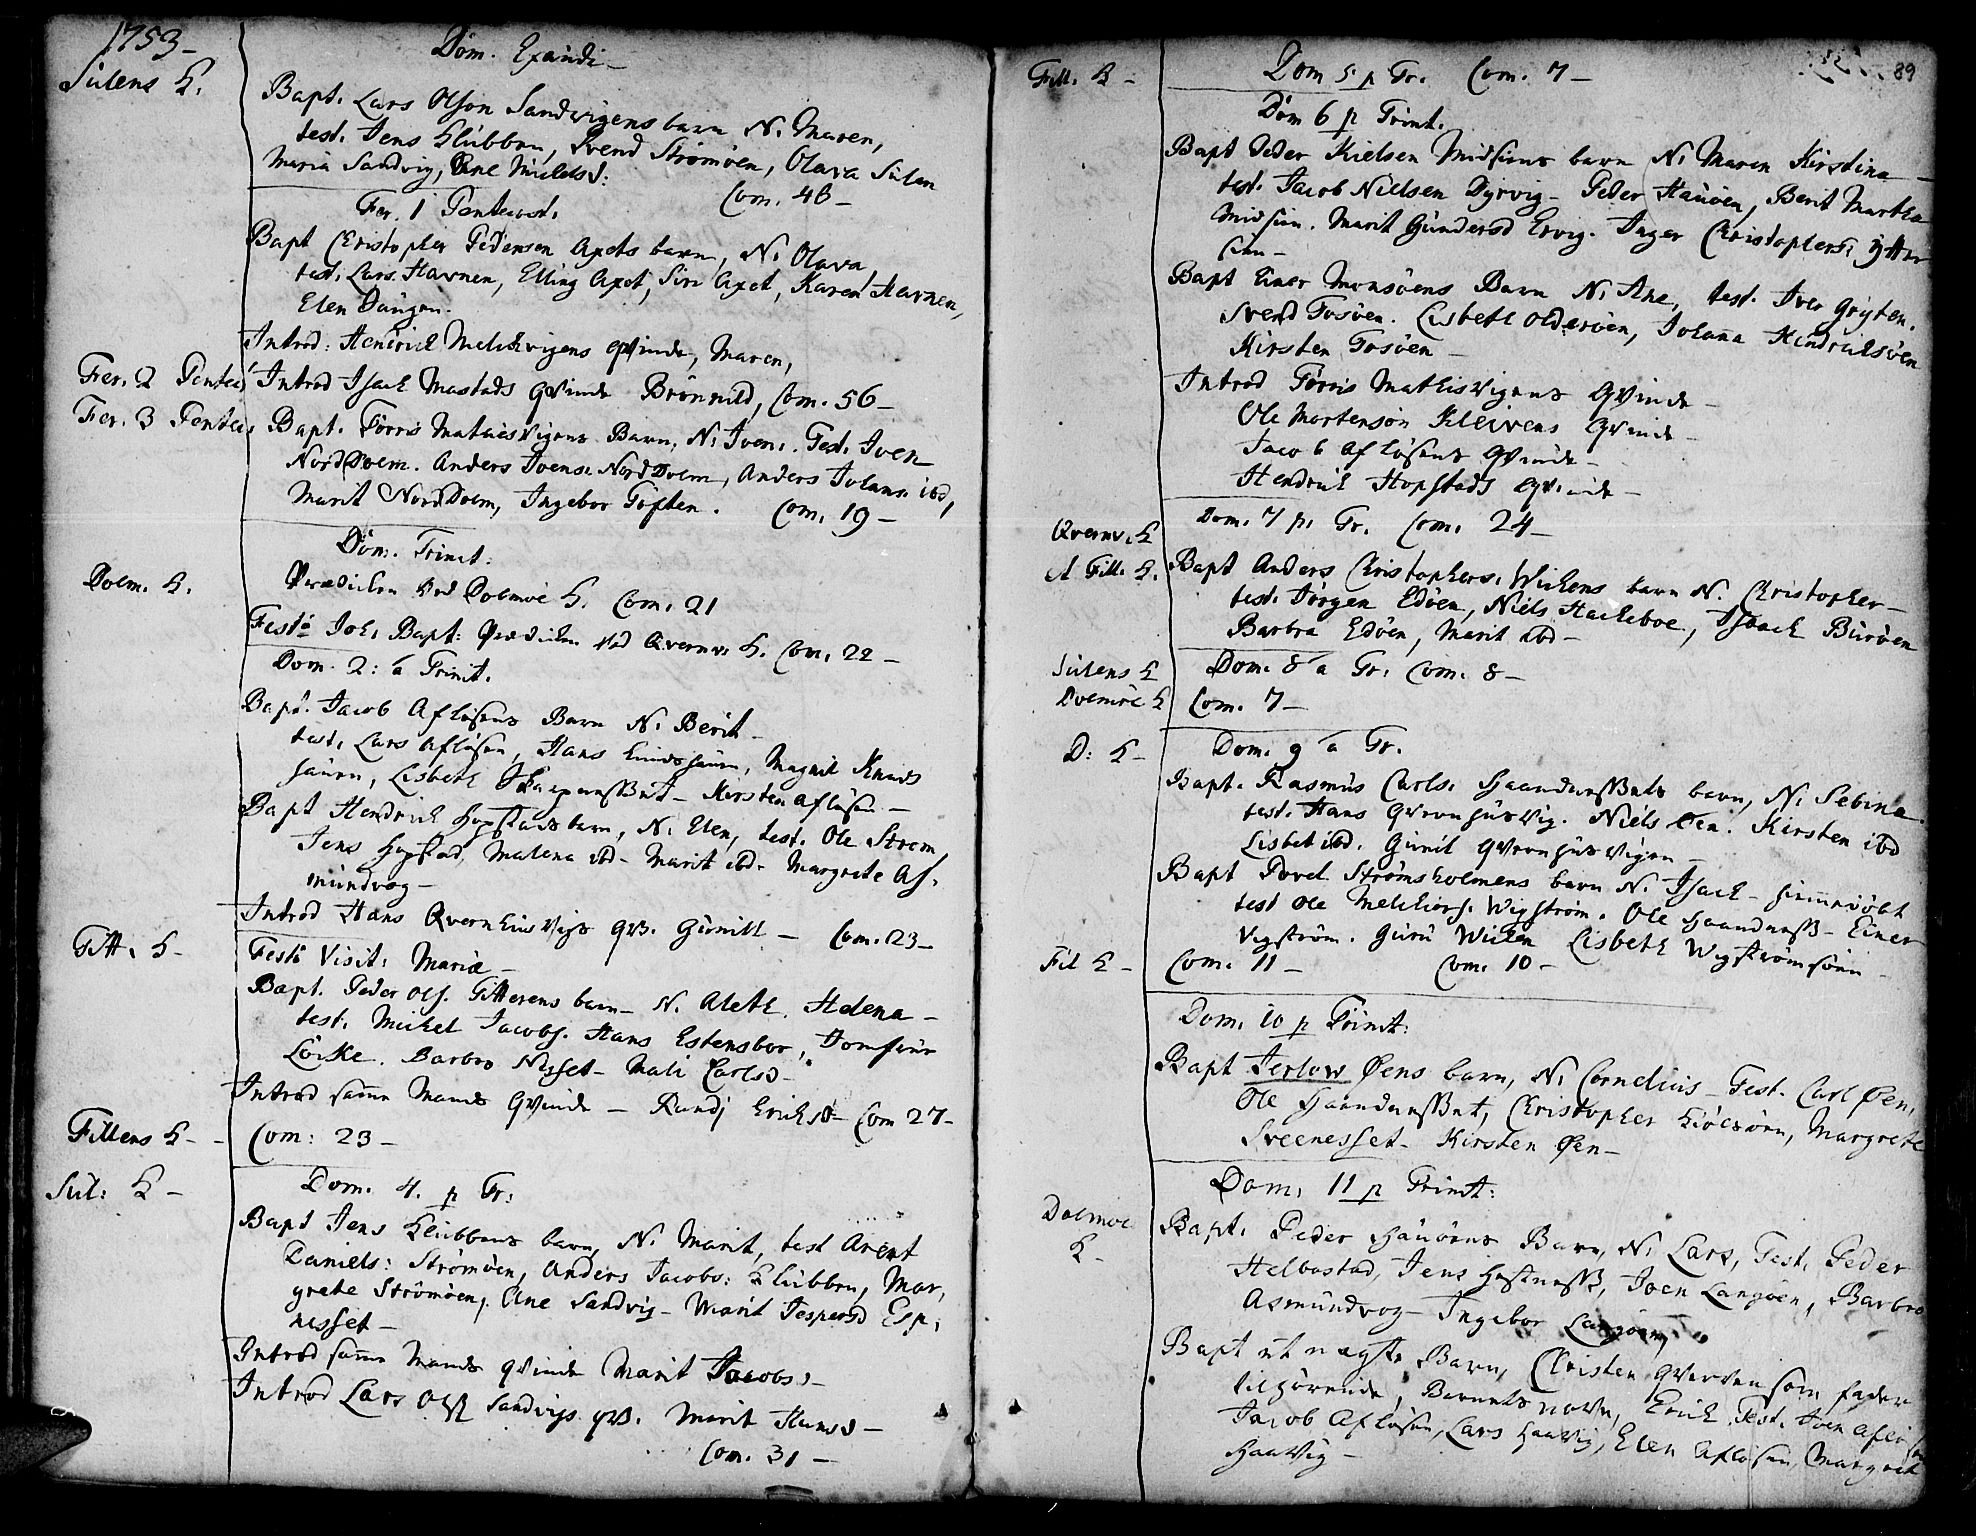 1753 -
Sulens K.
Dom. Exaudi -
Bapt. Lars Olson Sandvigens barn N. Maren,
test. Jens Klubben, Svend Strömöen, Olava Sulen
Maria Sandvig, Ane Nielsd:
Com. 48 -
Fer. 1 Pentecost.
Bapt Christopher Pedersen Axets barn, N. Olava,
test. Lars Havnen, Elling Axet, Siri Axet, Karen Havnen,
Elen
Introd: Henrich Melckvigens qvinde, Maren,
Fer. 2 Pentec. Introd Isach Mastads qvinde Brönnild, Com. 56 -
Fer. 3 Pentec. Bapt. Törris Mathisvigens Barn, N. Iven. Test. Iven
NordDolm. Anders Ivens. NordDolm, Anders Johans. ibd,
Marit NordDolm, Ingebor Töften. Com. 19 -
Dom. Trinit:
Dolm. K.
Prædiken ved Dolmöe K. Com. 21
Festo Joh. Bapt: Prædiken ved Qvernv. K. Com. 22 -
Dom. 2: a Trinit.
Bapt. Jacob Aflösens Barn N. Berit -
test. Lars Aflösen, Hans Knudshaun, Magnil Knuds
haun, Lisbeth - Kirsten Aflösen -
Bapt Hendrich Hopstads barn, N. Elen, test. Ole Strom
Jens Hopstad, Malena ibd - Marit ibd - Margrete As,
mundvog -
Introd Hans Qvernhusvigs qv. Gunild - Com. 23 -
Fitt. K -
Festo Visit. Mariæ -
Bapt. Peder Ols. Fitterens barn - N. Aleth. Helena -
test. Mickel Jacobs. Hans Estensboe, Jomfrue
Lörke. Barbro Nesset - Mali Carlsd -
Introd samme Mands Qvinde - Randj Erichsd - Com 27 -
Fillens K -
Com: 23 -
Sul: K -
Dom. 4. p Tr:
Bapt Jens Klubbens barn, N. Marit, test Arent
Daniels: Strömöen, Anders Jacobs: Klubben, Mar,
grete Strömöen, Ane Sandvig - Marit Jespersd Esp,
nesset -
Introd samme Mands qvinde Marit Jacobs: -
Introd Lars Ols Sandvigs qv. Marit Hansd -
Com. 31 -
89
Fill. K -
Dom 5 p Tr. Com. 7 -
Dom 6 p Trinit.
Bapt Peder Nielsen Midsiens barn N. Maren Kirstina -
test. Jacob Nielsen Dyrvig - Peder Hauöen, Berit Martha
Midsien. Marit Gundersd Ervig. Inger Christophers. ytter
sien -
Bapt Einer Monsöens Barn N. Ane, test. Iver Gryten.
Svend Fosöen. Lisbeth Olderöen, Johanna Hendrichsöen
Kirsten Fosöen -
Introd Törris Mathisvigens Qvinde -
Ole Mortensön Kleivens Qvinde -
Jacob Aflösens Qvinde -
Hendrich Hopstads Qvinde -
Qvernv. K
Dom. 7 p. Tr. Com. 24 -
A Fill. K. Bapt Anders Christophers. Wikens barn N. Christopher -
test. Jörgen Edöen, Niels Hackeboe, Isach Buröen
Barbra Edöen, Marit ibd -
Sulens K
Dom. 8 a Tr. Com. 8 -
Dolmöe K
Com. 7 -
D: K -
Dom. 9 a Tr.
Bapt. Rasmus Carls. barn, N. Sebina
test. Hans Qvernhusvig. Niels Öen. Kirsten ibd
Lisbet ibd. Gunil Qvernhusvigen -
Bapt Povel Strömsholmens barn N. Isach - hiemmedöbt
test Ole Melchiors. Wigström. Ole - Einer
Vigström. Guru Wiiken Lisbeth Wigströmsöen -
Fil K -
Com. 11 - Com. 10 -
Dom. 10 p Trinit:
Bapt Jerlow Öens barn, N. Cornelius - Test. Carl Öen,
Ole Christopher Margrete
Sveenesset - Kirsten Öen -
Dom. 11 p Trinit:
Dolmöe
K -
Bapt. Peder Hauöens Barn, N. Lars, Test. Peder
Helbostad, Jens Joen Langöen, Barbro
Asmundvog - Ingebor Langöen
Bapt et uægte Barn, Christen som fader
tilhörende, Barnets navn, Erich, Test. Joen Aflösen
Jacob Aflösen, Lars Haavig, Elen Aflösen, Margret
Haavig -